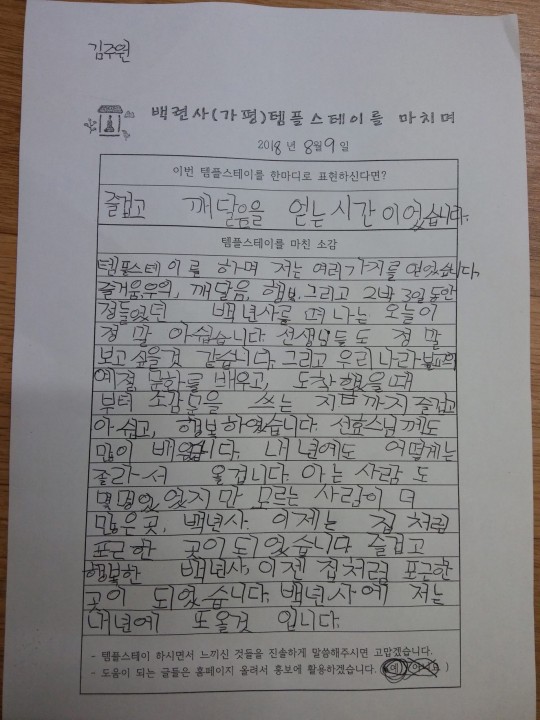 김주원
백련사(가평)템플스테이를 마치며
2018년 8월 9일
이번 템플스테이를 한마디로 표현하신다면?
즐겁고 깨달음을 얻는 시간이었습니다.
템플스테이를 마친 소감
템플스테이를 하며 저는 여러가지를 얻었습니다.
즐거움, 우의, 깨달음, 행복, 그리고 2박 3일동안
정들었던 백년사를 떠나는 오늘이
정말 아쉽습니다. 선생님들도 정말
보고싶을것 같습니다. 그리고 우리나라
예절, 문화를 배우고, 도착했을때
부터 소감문을 쓰는 지금까지 즐겁고
아쉽고, 행복하였습니다. 선효스님께도
많이 배웠습니다. 내년에도 어떻게는
졸라서 올겁니다. 아는 사람도
몇명있었지만 모르는 사람이 더
많은곳, 백년사. 이제는 집처럼
포근한 곳이되었습니다. 즐겁고
행복한 백년사, 이젠 집처럼 포근한
곳이 되었습니다. 백년사에 저는
내년에 또올것 입니다.
- 템플스테이 하시면서 느끼신 것들을 진솔하게 말씀해주시면 고맙겠습니다.
- 도움이 되는 글들은 홈페이지 올려서 홍보에 활용하겠습니다. (예)